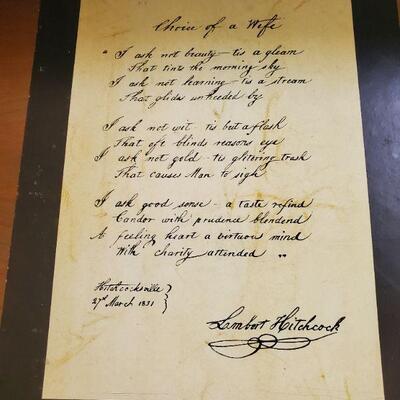 Choice of a Wife
" I ask not beauty - tis a gleam
That tints the morning sky
I ask not learning - tis a stream
That glides unheeded by
I ask not wit - tis but a flash
That oft blinds reasons eye
I ask not gold - tis glittering trash
That causes Man to sigh
I ask good sense - a taste refind
Candor with prudence blendend
A feeling heart a virtuous mind
With charity attended "
Hitchcocksville }
27th March 1831 }
Lambert Hitchcock